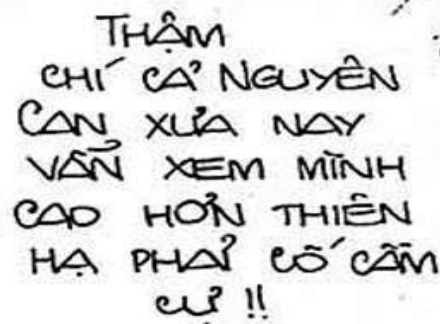 THẬM
CHÍ CẢ NGUYÊN
CAN XƯA NAY
VẪN XEM MÌNH
CAO HƠN THIÊN
HẠ PHẢI CỐ CẦM
CỰ !!